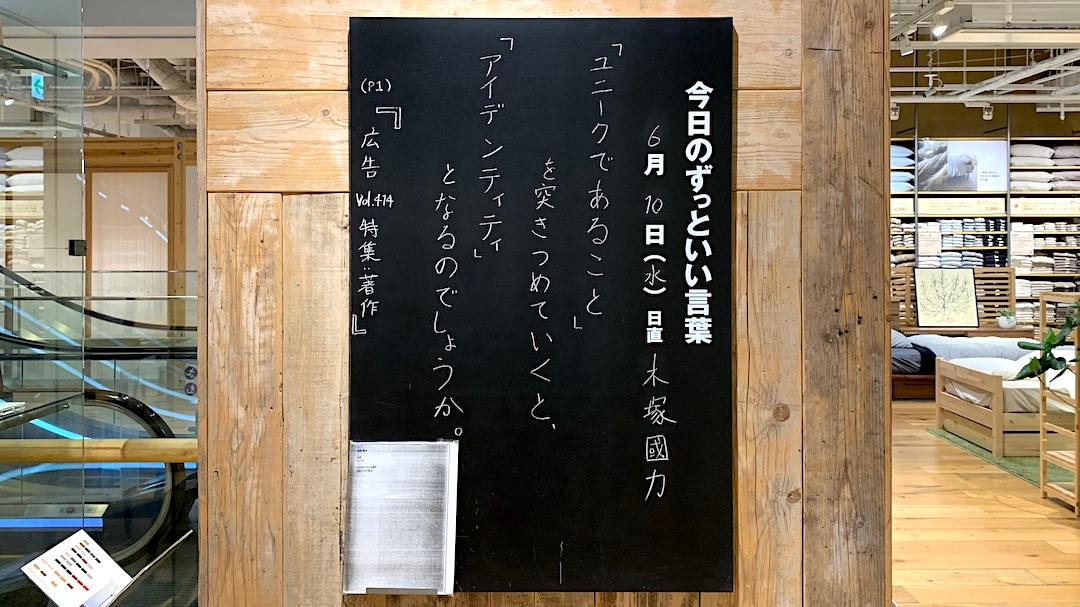 今日のずっといい言葉
6月10日(水)日直 木塚國力
「ユニークであること」
を突きつめていくと、
「アイデンティティ」
となるのでしょうか。
(P1)『広告 Vol.414 特集:著作』